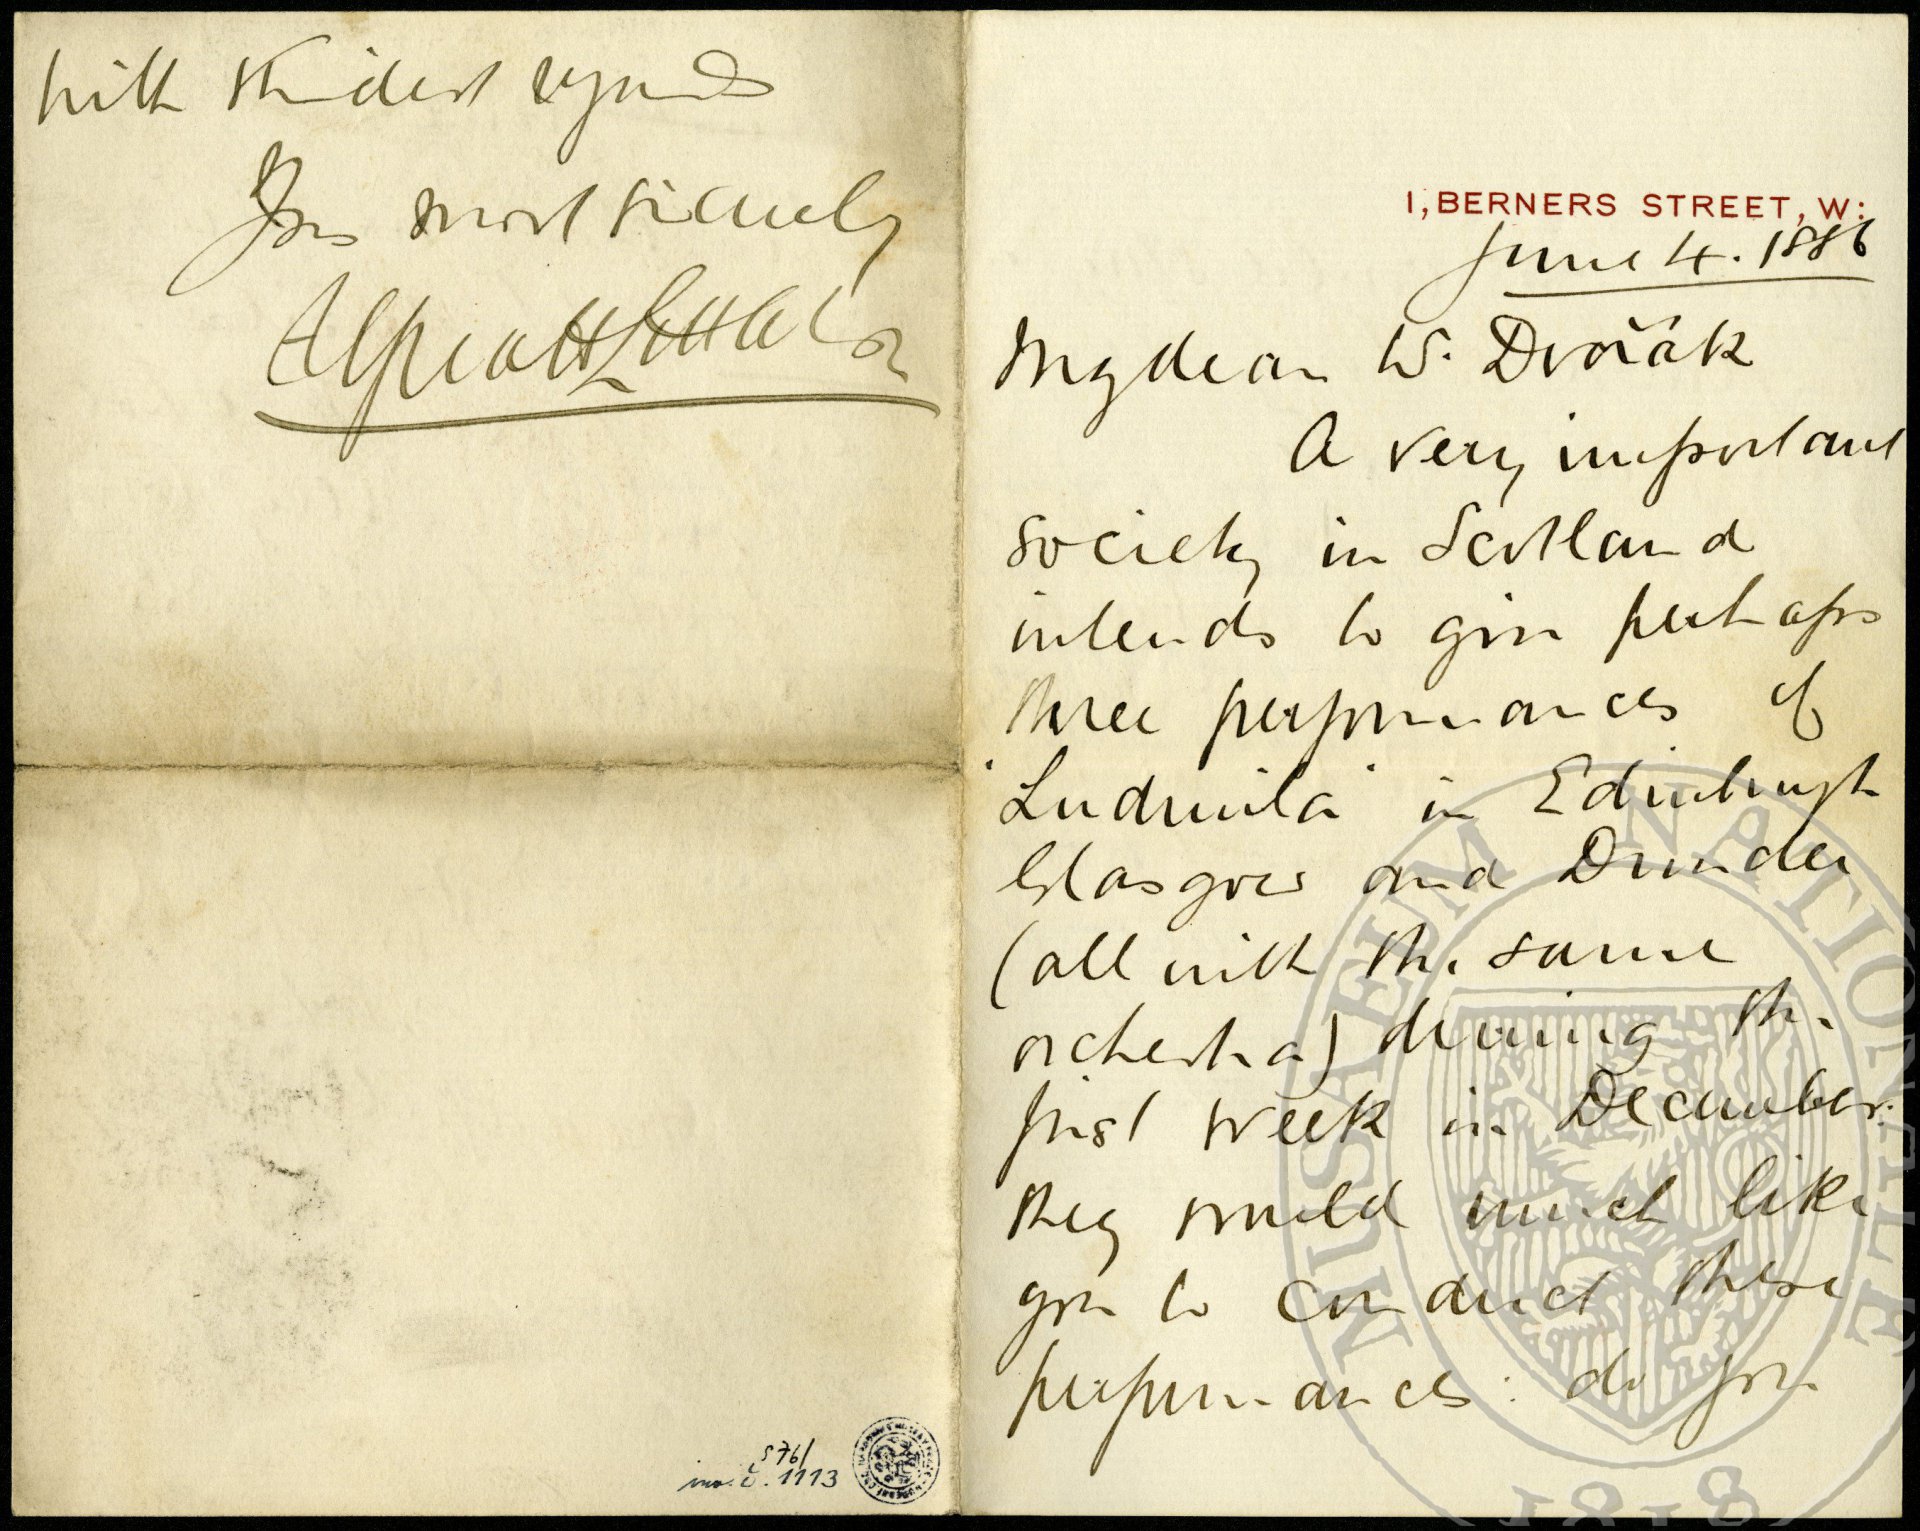 1, BERNERS STREET, W:
June 4. 1886
My dear Mr. Dvořák
A very important
society in Scotland
intends to give perhaps
three performances of
"Ludmila" in Edinburgh
Glasgow and Dundee
(all with the same
orchestra) during the
first week in December.
They would much like
you to conduct these
performances: do you
with kindest regards
Yrs most sincerely
Alfred H Littleton
576/
inv. č. 1113
MUSAEUM NATIONALE
1818